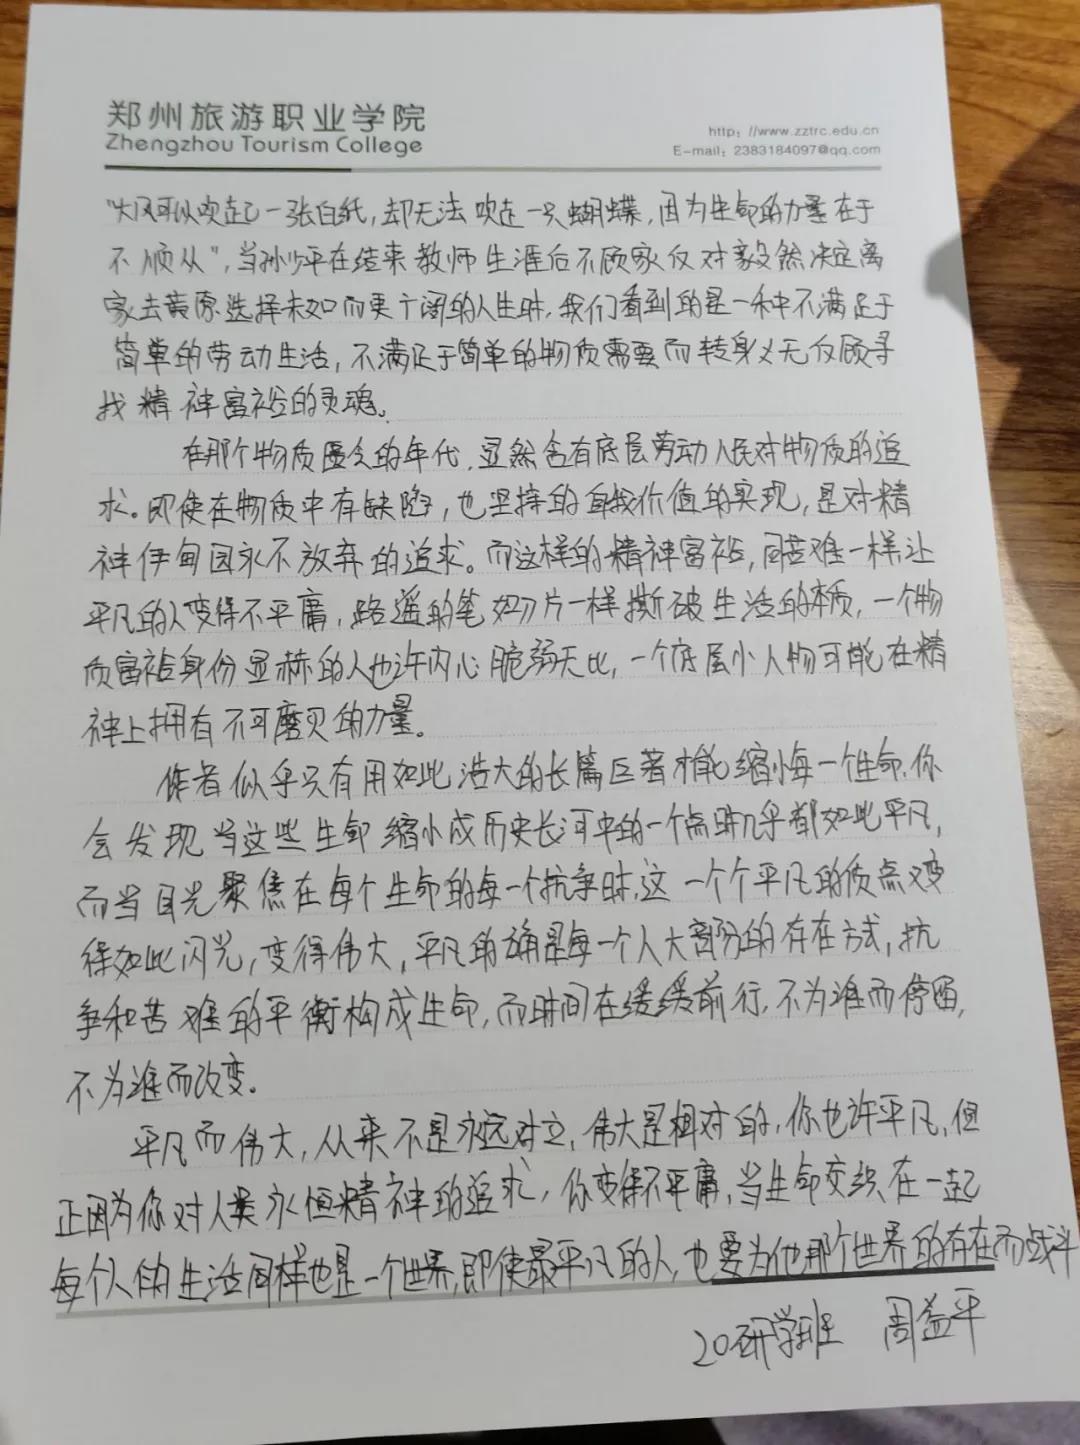 郑州旅游职业学院
Zhengzhou Tourism College
http://www.zztrc.edu.cn
E-mail: 2383184097@qq.com
"大风可以吹起一张白纸，却无法吹走一只蝴蝶，因为生命的力量在于
不顺从"，当孙少平在结束教师生涯后不顾家仅对毅然决定离
家去黄原选择未知而更广阔的人生时，我们看到的是一种不满足于
简单的劳动生活，不满足于简单的物质需要而转身义无反顾寻
找精神富裕的灵魂。
在那个物质匮乏的年代，显然含有底层劳动人民对物质的追
求。即使在物质中有缺陷，也坚持的自我价值的实现，是对精
神伊甸园永不放弃的追求。而这样的精神富裕，同苦难一样让
平凡的人变得不平庸，路遥的笔如刀片一样撕破生活的本质，一个物
质富裕身份显赫的人也许内心脆弱无比，一个底层小人物可能在精
神上拥有不可磨灭的力量。
作者似乎只有用如此浩大的长篇巨著才能缩小每一个生命，你
会发现当这些生命缩小成历史长河中的一个点时几乎都如此平凡，
而当目光聚焦在每个生命的每一个抗争时，这一个个平凡的质点又变
得如此闪光，变得伟大，平凡的确是每一个人大部分的存在方式，抗
争和苦难的平衡构成生命，而时间在缓缓前行，不为谁而停留，
不为谁而改变。
平凡而伟大，从来不是永远对立，伟大是相对的，你也许平凡，但
正因为你对人类永恒精神的追求，你变得不平庸，当生命交织在一起
每个人的生活同样也是一个世界，即使最平凡的人，也要为他那个世界的存在而战斗
20研学班 周益平